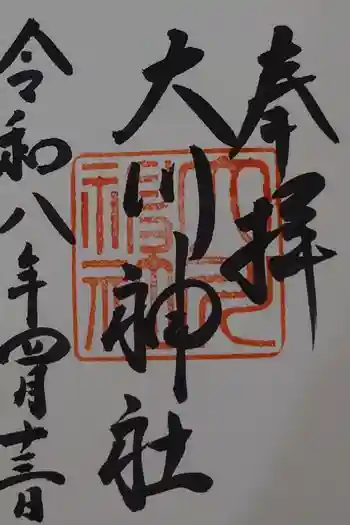 奉拝
大川神社
令和八年四月十三日
大川神社